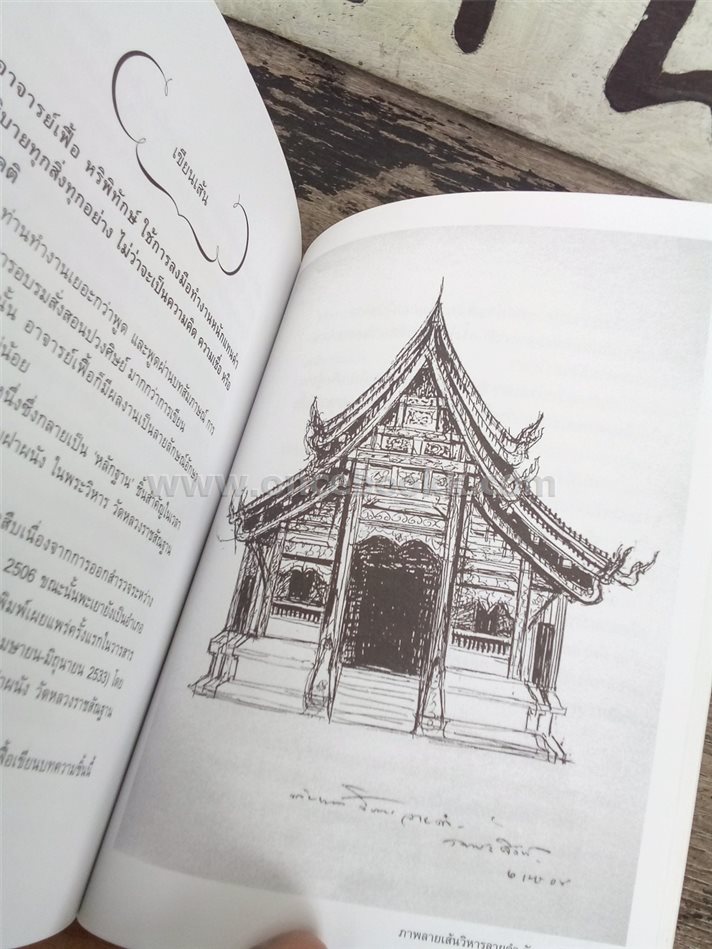 เขียนเส้น
อาจารย์เฟื้อ หริพิทักษ์ ใช้การลงมือทำงานหนักแทนคำ
ทุกสิ่งทุกอย่าง ไม่ว่าจะเป็นความคิด ความเชื่อ หรือ
ท่านทำงานเยอะกว่าพูด และพูดผ่านบทสัมภาษณ์ การ
อบรมสั่งสอนปวงศิษย์ มากกว่าการเขียน
อาจารย์เฟื้อก็มีผลงานเป็นลายลักษณ์อักษร
น้อย
ซึ่งกลายเป็น 'หลักฐาน' ชิ้นสำคัญในเวลา
ฝาผนัง ในพระวิหาร วัดหลวงราชสัณฐาน
สืบเนื่องจากการออกสำรวจระหว่าง
2506 ขณะนั้นพะเยายังเป็นอำเภอ
พิมพ์เผยแพร่ครั้งแรกในวารสาร
เมษายน-มิถุนายน 2533) โดย
วัดหลวงราชสัณฐาน
เฟื้อเขียนบทความชิ้นนี้
ภาพลายเส้นวิหารลายคำ